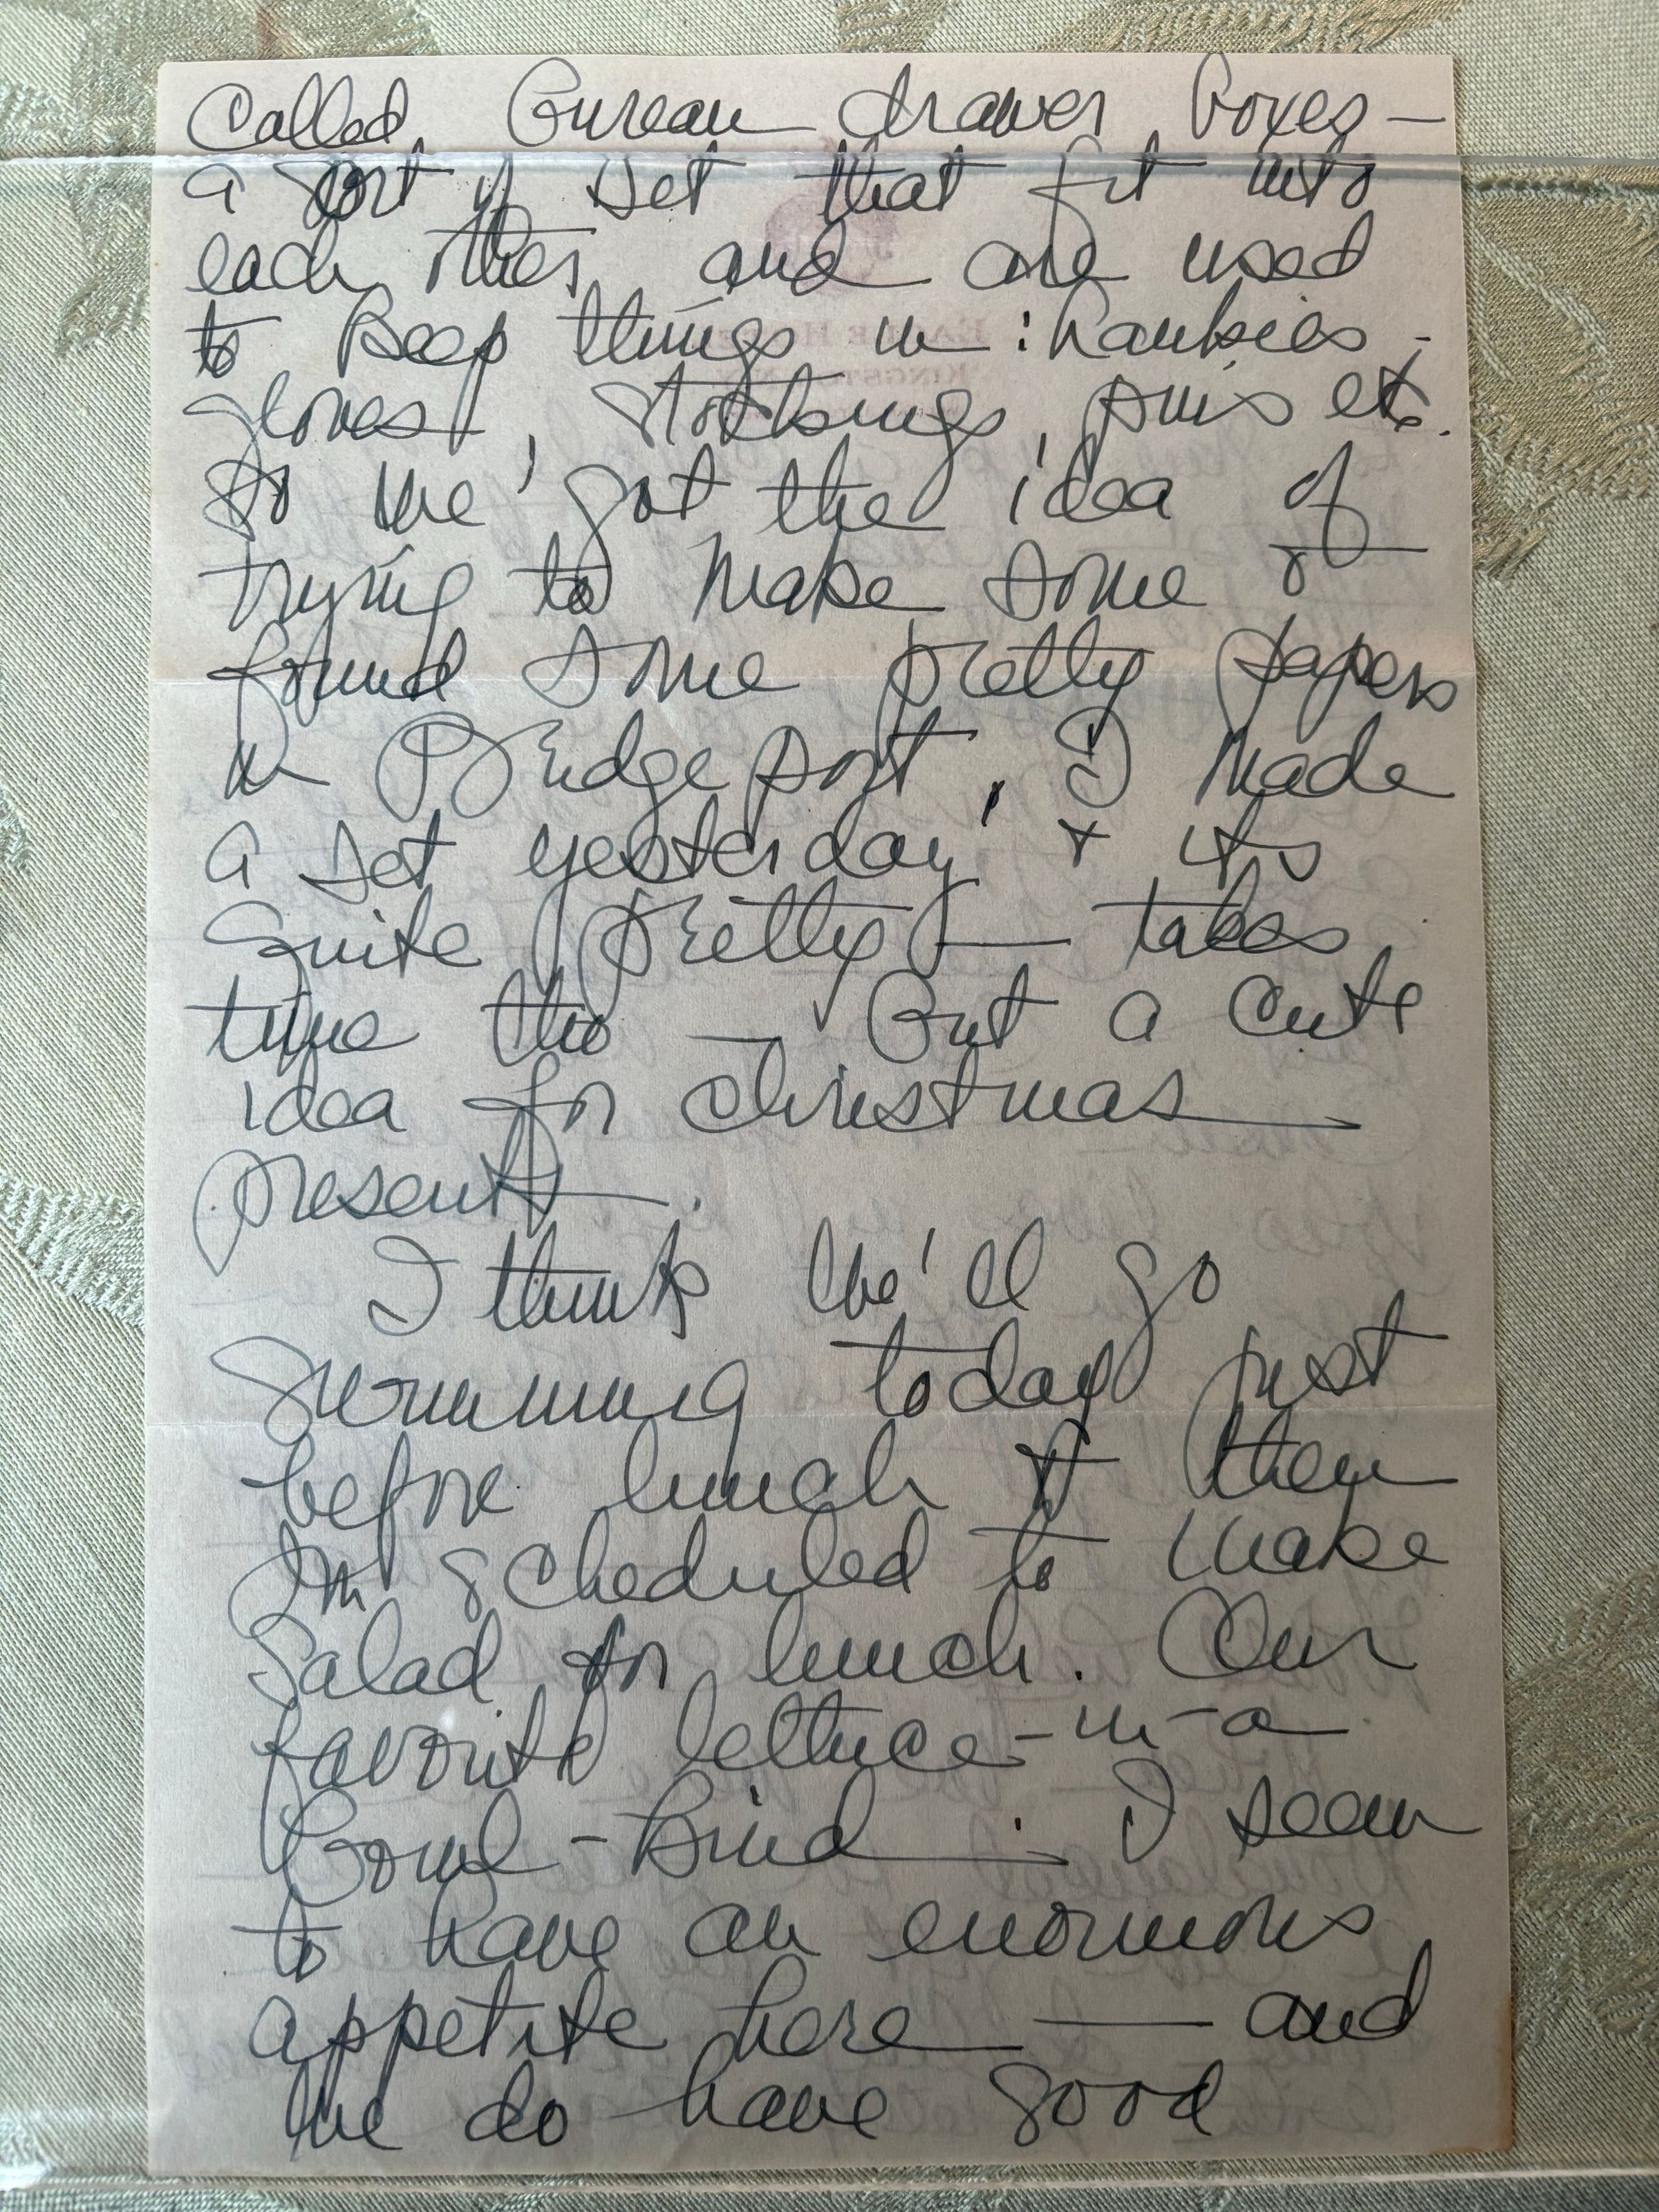 Called Bureau drawer boxes —
a sort of set that fit into
each other and are used
to keep things in : hankies -
gloves, stockings, pins etc.
So we got the idea of
trying to make some &
found some pretty papers
in Bridgeport, I made
a set yesterday & its
quite pretty — takes
time tho — But a cute
idea for Christmas
present — .
I think we'll go
swimming today just
before lunch & then
Im scheduled to make
Salad for lunch. Our
favorite lettuce-in-a
Bowl-kind. I seem
to have an enormous
appetite here — and
we do have good